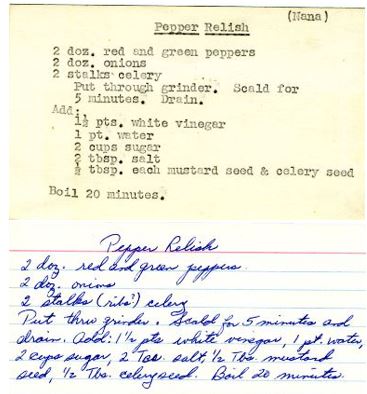 (Nana)
Pepper Relish
2 doz. red and green peppers
2 doz. onions
2 stalks celery
Put through grinder. Scald for
5 minutes. Drain.
Add:
1½ pts. white vinegar
1 pt. water
2 cups sugar
2 tbsp. salt
½ tbsp. each mustard seed & celery seed
Boil 20 minutes.
Pepper Relish
2 doz. red and green peppers
2 doz. onions
2 stalks (ribs?) celery
Put thru grinder. Scald for 5 minutes and
drain. Add: 1½ pts white vinegar, 1 pt. water,
2 cups sugar, 2 Tbs. salt, ½ Tbs. mustard
seed, ½ Tbs. celery seed. Boil 20 minutes.